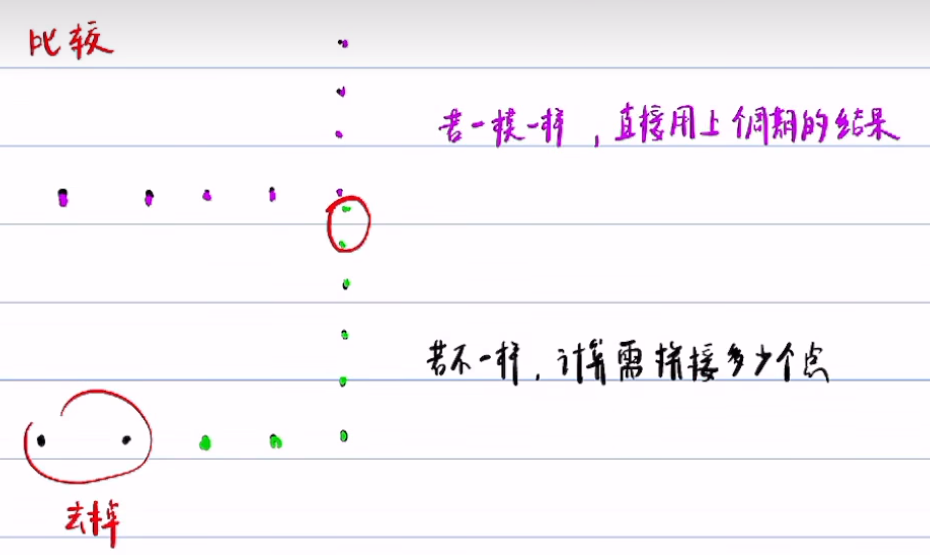 比较
若一模一样，直接用上个周期的结果
若不一样，计算需拼接多少个点
去掉